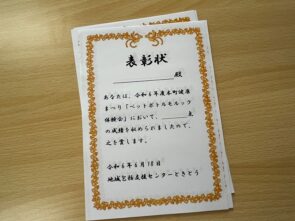 表彰状
殿
あなたは、令和6年度本町健康
まつり「ペットボトルモルック
体験会」において、　　　点
の成績を収められましたので、
之を賞します。
令和6年6月18日
地域包括支援センターときとう